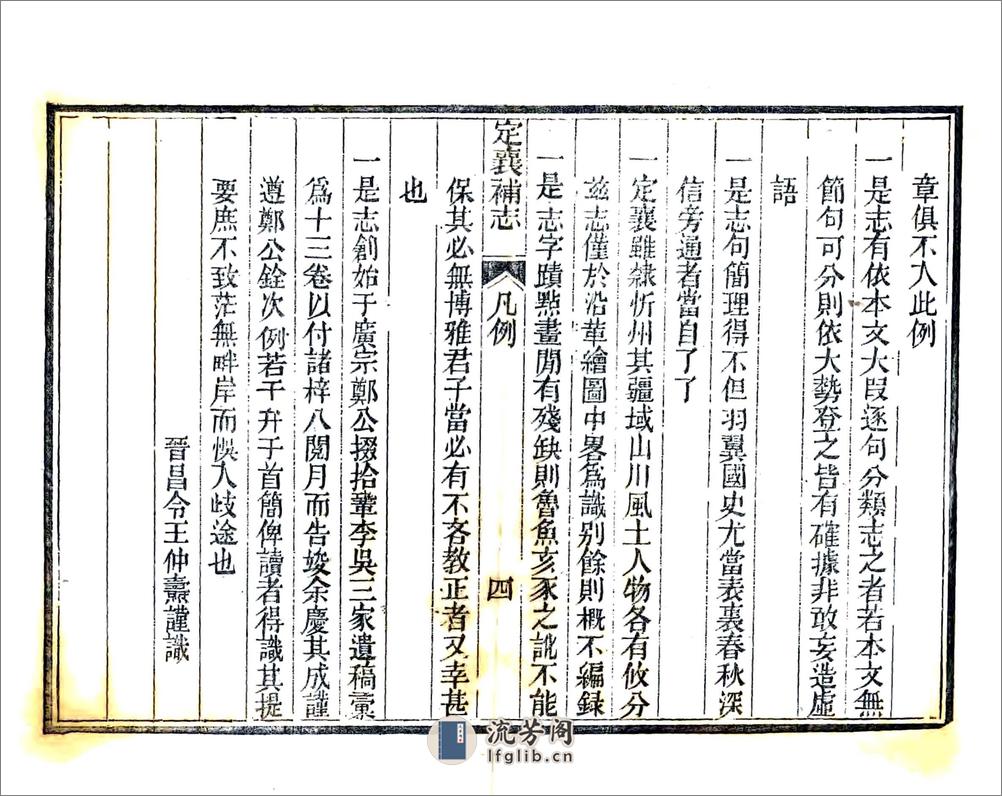 章俱不入此例
一是志有依本文大段逐句分類志之者若本文無
節句可分則依大勢登之皆有確據非敢妄造虛
語
一是志句簡理得不但羽翼國史尤當表裏春秋深
信旁通者當自了了
一定襄雖隸忻州其疆域山川風土人物各有攸分
玆志僅於沿革繪圖中畧爲識別餘則概不編録
一是志字蹟點畫閒有殘缺則魯魚亥豕之訛不能
定襄補志
凡例
四
保其必無博雅君子當必有不吝教正者又幸甚
也
一是志創始于廣宗鄭公掇拾鞏李吳三家遺稿彙
爲十三卷以付諸梓八閱月而告竣余慶其成謹
遵鄭公銓次例若干弁于首簡俾讀者得識其提
要庶不致茫無畔岸而悞入歧途也
晉昌令王仲燾謹識
流芳阁
lfglib.cn